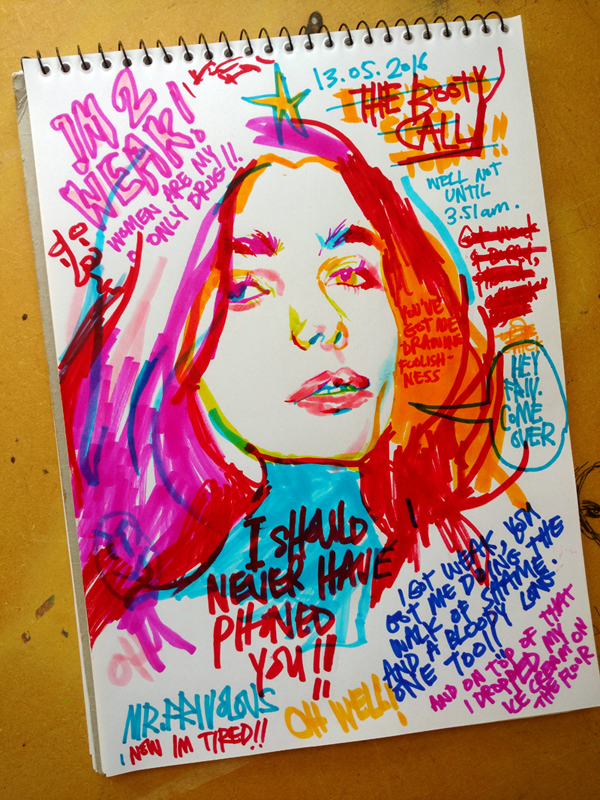 IN 2
WEAK!
WOMEN ARE MY
ONLY DRUG!!
13.05.2016
THE BOOTY
CALL!!
WELL NOT
UNTIL
3.51am.
YOU'VE
GOT ME
DRAWING
FOOLISH-
NESS
HEY
FAIV.
COME
OVER
I SHOULD
NEVER HAVE
PHONED
YOU!!
I GOT WEAK, YOU
GOT ME DOING THE
WALK OF SHAME.
AND A BLOODY LONG
ONE TOO!!
AND ON TOP OF THAT
I DROPPED MY
ICE CREAM ON
THE FLOOR
OH WELL!
MR.FAIVOLOUS
NOW IM TIRED!!